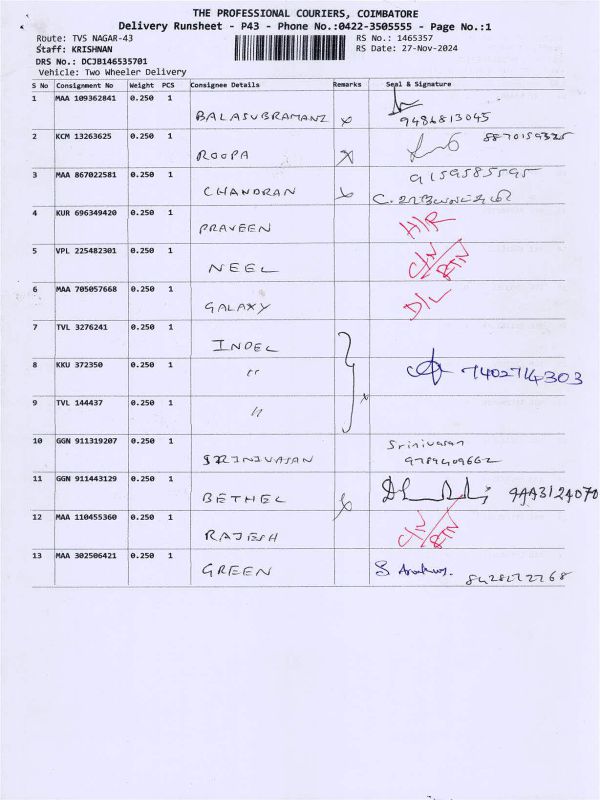 THE PROFESSIONAL COURIERS, COIMBATORE
Delivery Runsheet - P43 - Phone No.:0422-3505555 - Page No.:1
Route: TVS NAGAR-43 RS No.: 1465357
Staff: KRISHNAN RS Date: 27-Nov-2024
DRS No.: DCJB146535701
Vehicle: Two Wheeler Delivery
S No Consignment No Weight PCS Consignee Details Remarks Seal & Signature
1 MAA 109362841 0.250 1 BALASUBRAMANI 9486813045
2 KCM 13263625 0.250 1 ROOPA 8870159325
3 MAA 867022581 0.250 1 CHANDRAN 9159585595
4 KUR 696349420 0.250 1 PRAVEEN H/R
5 VPL 225482301 0.250 1 NEEL C/N RTN
6 MAA 705057668 0.250 1 GALAXY D/L
7 TVL 3276241 0.250 1 INDEL
8 KKU 372350 0.250 1 " 7402714303
9 TVL 144437 0.250 1 "
10 GGN 911319207 0.250 1 SRINIVASAN Srinivasan
9789409662
11 GGN 911443129 0.250 1 BETHEL
12 MAA 110455360 0.250 1 RAJESH C/N RTN
13 MAA 302506421 0.250 1 GREEN 8428272268